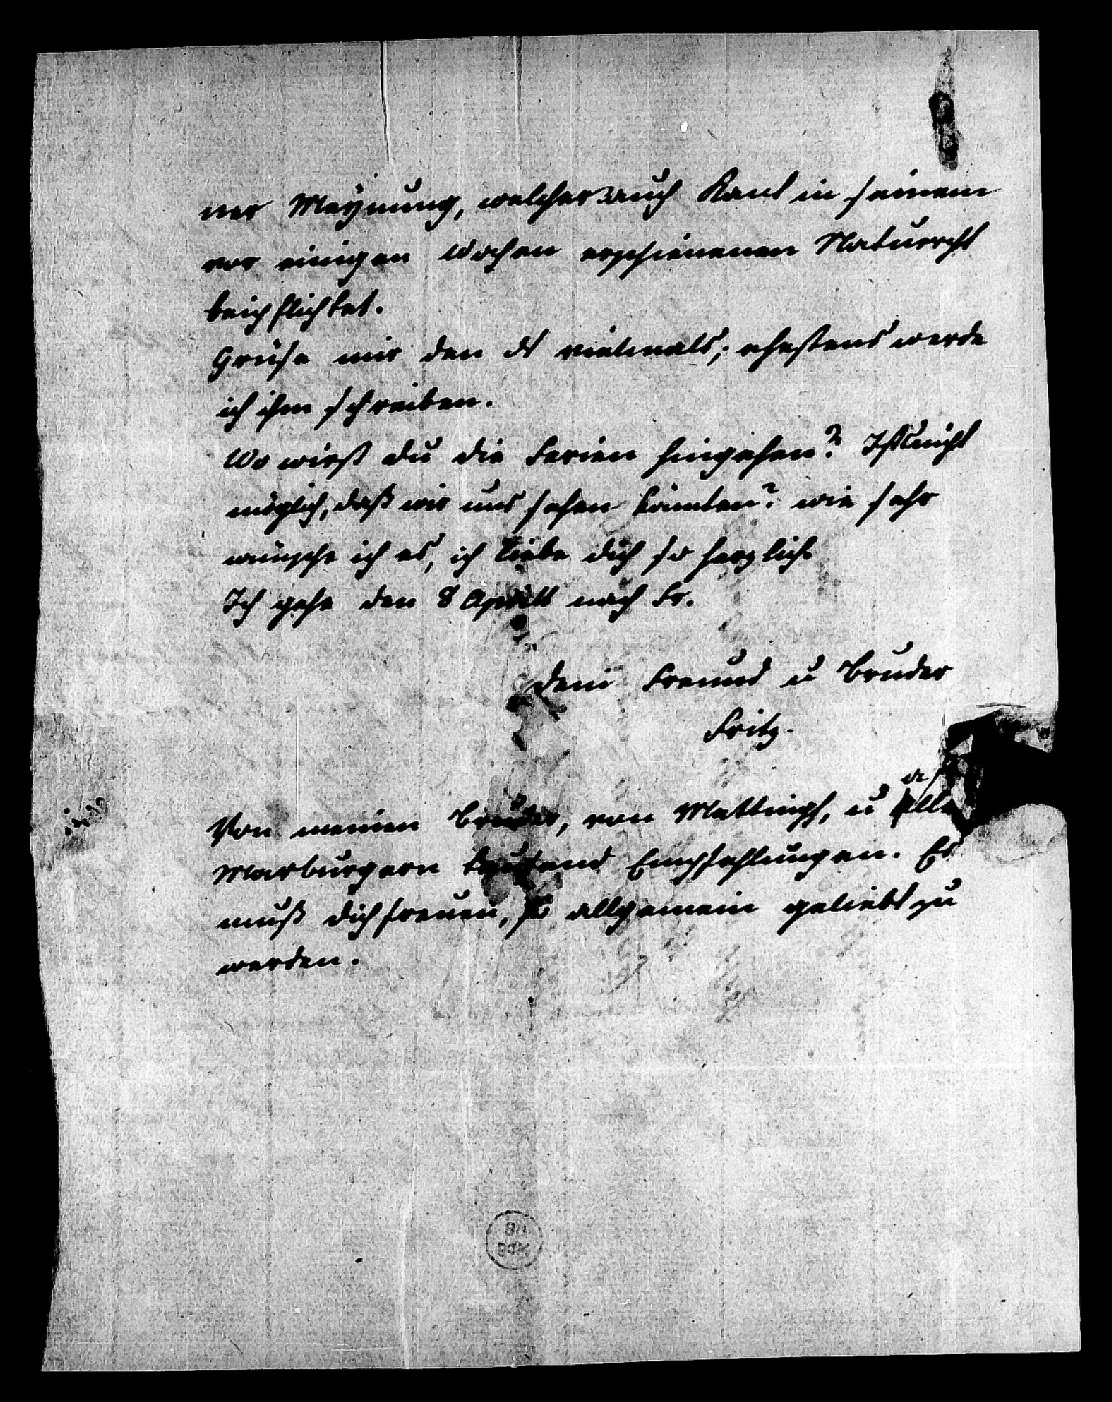 ner Meynung, welcher auch Kant in seinem
vor einigen Wochen erschienenen Naturrecht
beipflichtet.
Grüse mir den vielmals; ehestens werde
ich ihm schreiben.
Wo wirst du die Ferien hingehen? Ists nicht
möglich, daß wir uns sehen könnten? wie sehr
wünsche ich es, ich liebe dich so herzlich
Ich gehe den 8 Aprill nach Fr.
dein Freund u Bruder
Fritz.
Von meinen Bruder, von u alle
Marburgern tausend Empfehlungen. Es
muß dich freuen, so allgemein geliebt zu
werden.